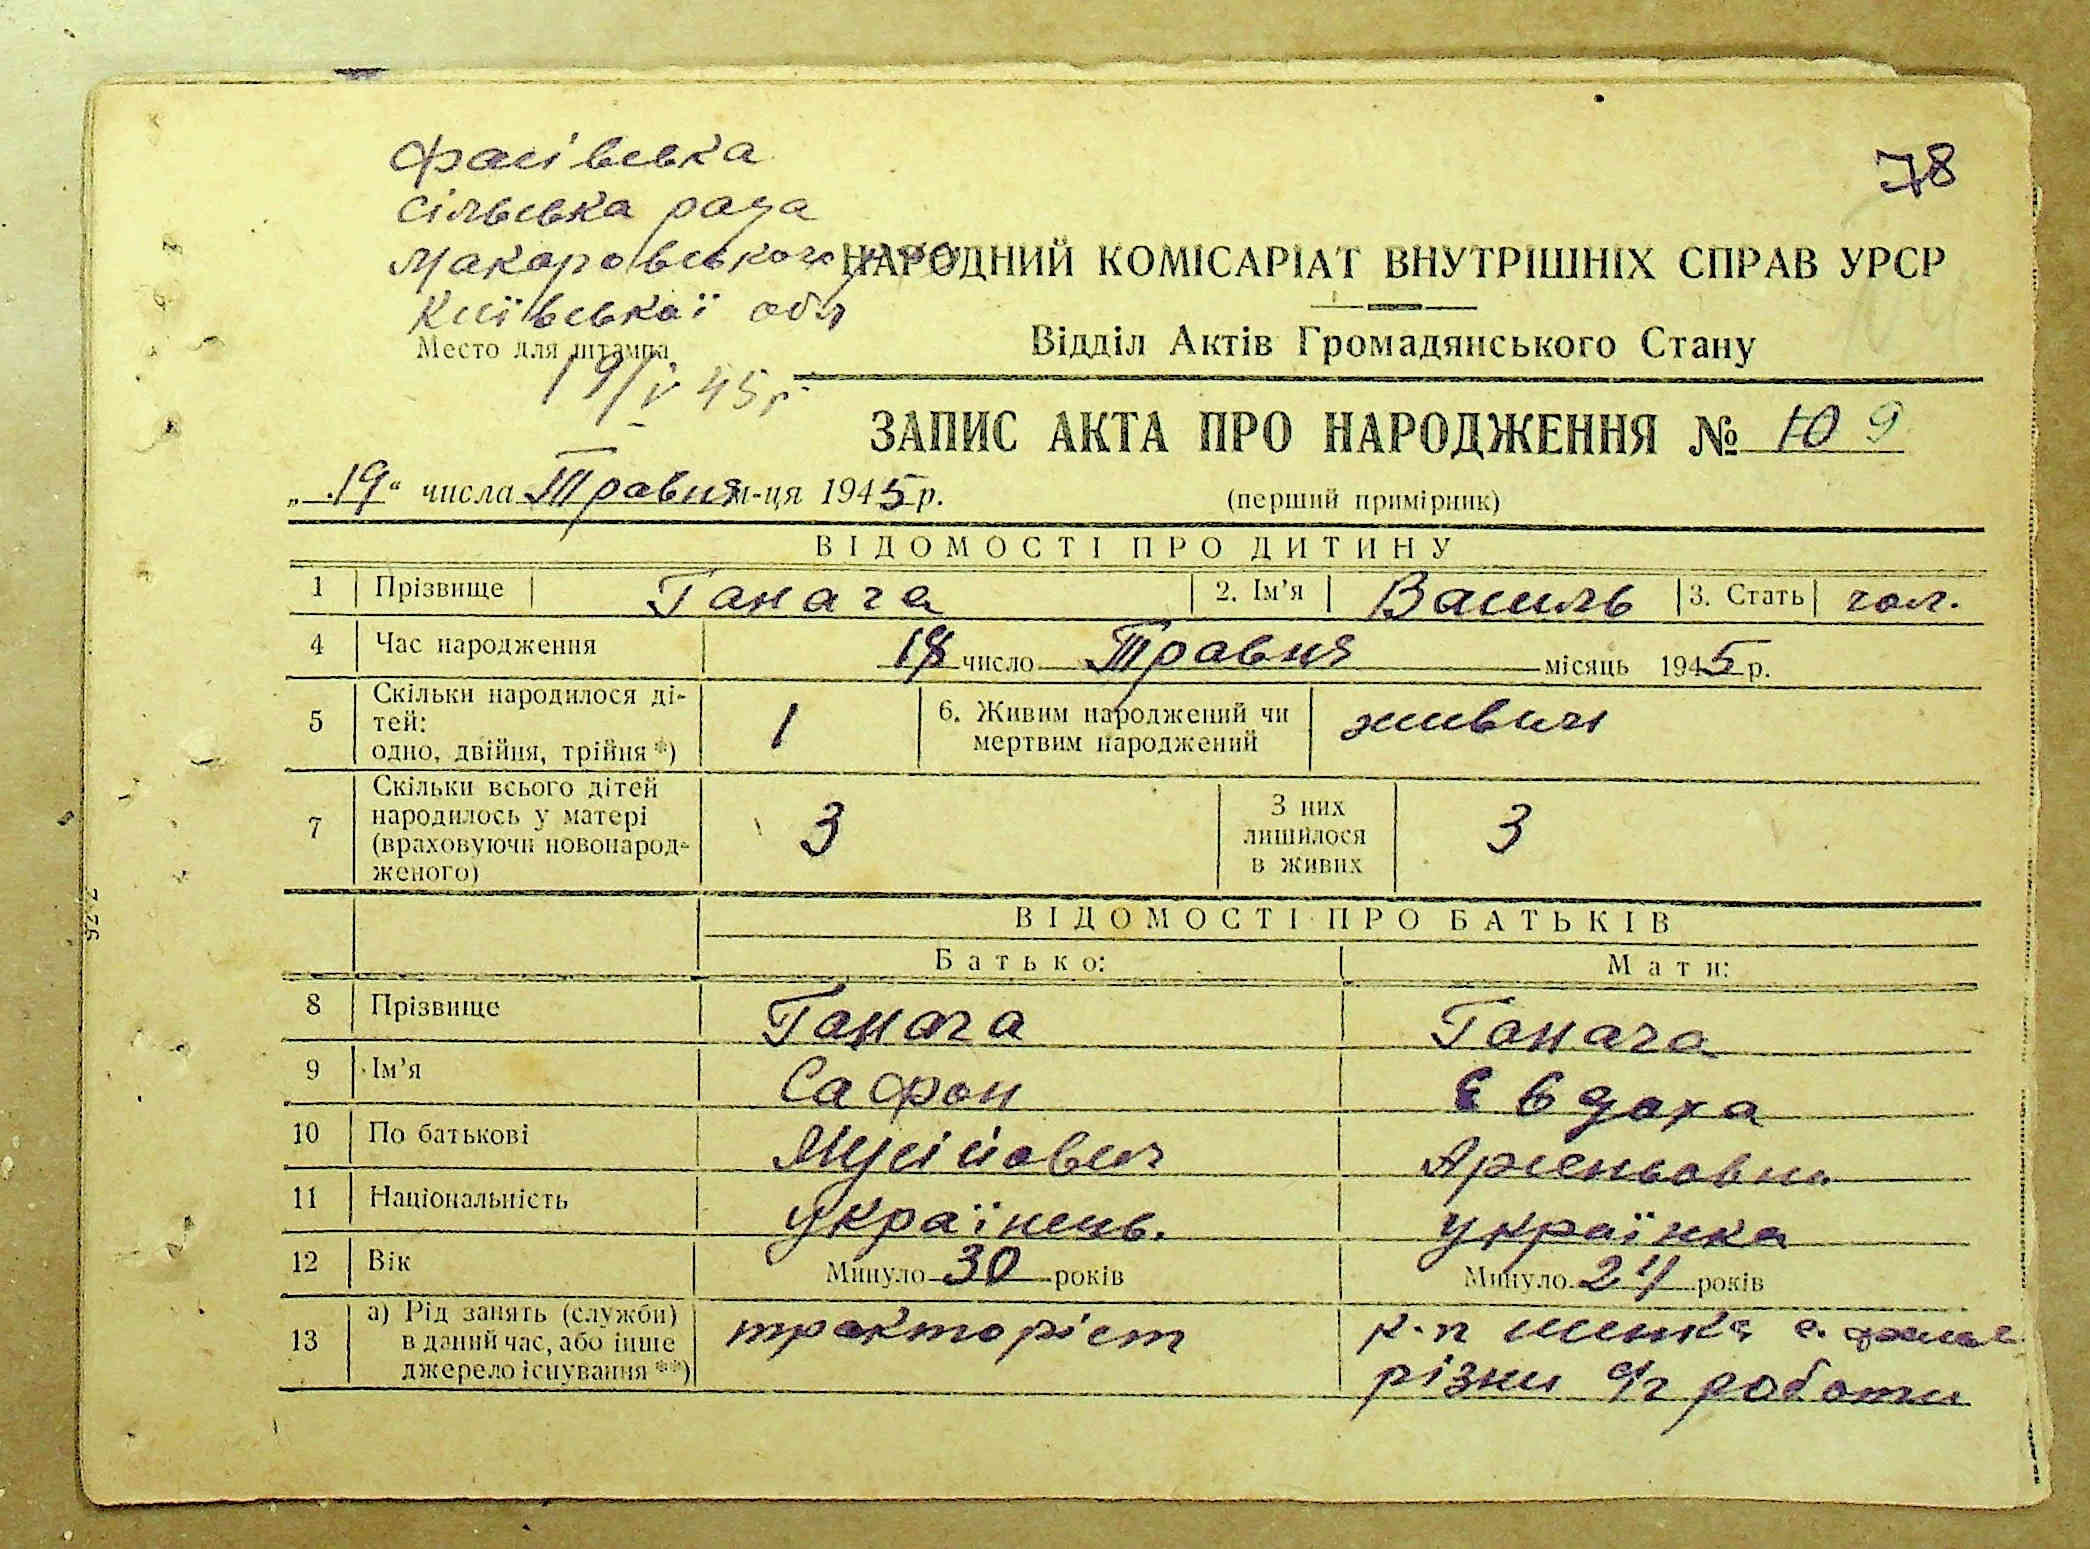 78
Фасівська
сільська рада
Макаровського р-ну
Київської обл
НАРОДНИЙ КОМІСАРІАТ ВНУТРІШНІХ СПРАВ УРСР
Место для штампа
Відділ Актів Громадянського Стану
19/V 45 р
ЗАПИС АКТА ПРО НАРОДЖЕННЯ № 10 9
„19“ числа Травня м-ця 1945 р. (перший примірник)
ВІДОМОСТІ ПРО ДИТИНУ
1 Прізвище Ганага 2. Ім’я Василь 3. Стать чол.
4 Час народження 18 число Травня місяць 1945 р.
5 Скільки народилося ді-
тей:
одно, двійня, трійня *) 1 6. Живим народжений чи
мертвим народжений живим
7 Скільки всього дітей
народилось у матері
(враховуючи новонарод-
женого) 3 З них
лишилося
в живих 3
ВІДОМОСТІ ПРО БАТЬКІВ
Батько: Мати:
8 Прізвище Ганага Ганага
9 Ім’я Сафон Євдоха
10 По батькові Мусійович Арсеньовна
11 Національність українець. українка
12 Вік Минуло 30 років Минуло 24 років
13 а) Рід занять (служби)
в даний час, або інше
джерело існування **) тракторіст
різни с/г роботи